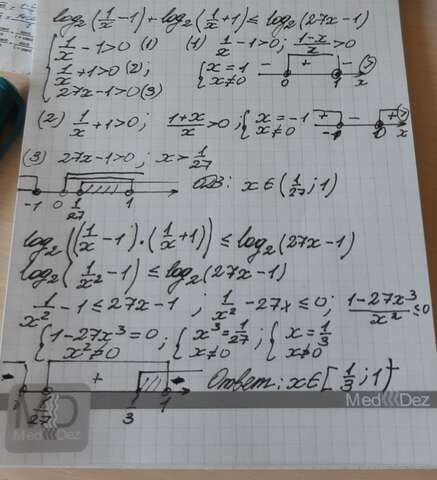 log₂(1/x - 1) + log₂(1/x + 1) ≤ log₂(27x - 1)
{ 1/x - 1 > 0 (1)
{ 1/x + 1 > 0 (2);
{ 27x - 1 > 0 (3)
(1) 1/x - 1 > 0; (1-x)/x > 0
{ x = 1
{ x ≠ 0
- + - (>)
0 1 x
(2) 1/x + 1 > 0; (1+x)/x > 0; { x = -1 { x ≠ 0
+ - + (>)
-1 0 x
(3) 27x - 1 > 0; x > 1/27
-1 0 1/27 1
ОДЗ: x ∈ (1/27; 1)
log₂((1/x - 1)·(1/x + 1)) ≤ log₂(27x - 1)
log₂(1/x² - 1) ≤ log₂(27x - 1)
1/x² - 1 ≤ 27x - 1; 1/x² - 27x ≤ 0; (1 - 27x³)/x² ≤ 0
{ 1 - 27x³ = 0; { x³ = 1/27; { x = 1/3
{ x² ≠ 0 { x ≠ 0 { x ≠ 0
+ -
1/27 1/3 1
Ответ: x ∈ [1/3; 1)
MedDez
MD
Med
Dez